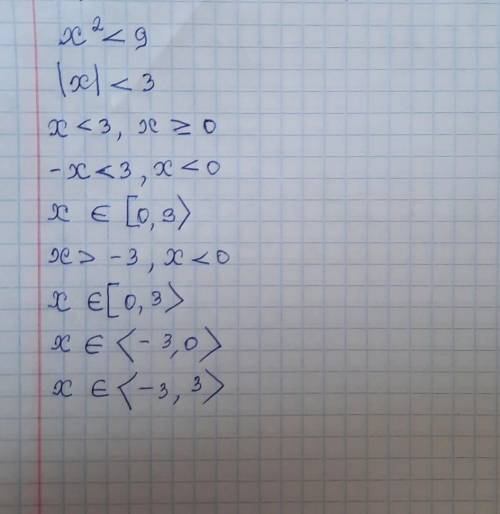 x² < 9
|x| < 3
x < 3, x ≥ 0
-x < 3, x < 0
x ∈ [0, 3⟩
x > -3, x < 0
x ∈ [0, 3⟩
x ∈ ⟨-3, 0⟩
x ∈ ⟨-3, 3⟩